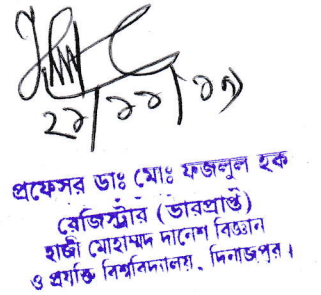 ২১/১১/১৭
প্রফেসর ডাঃ মোঃ ফজলুল হক
রেজিস্ট্রার (ভারপ্রাপ্ত)
হাজী মোহাম্মদ দানেশ বিজ্ঞান
ও প্রযুক্তি বিশ্ববিদ্যালয়, দিনাজপুর।